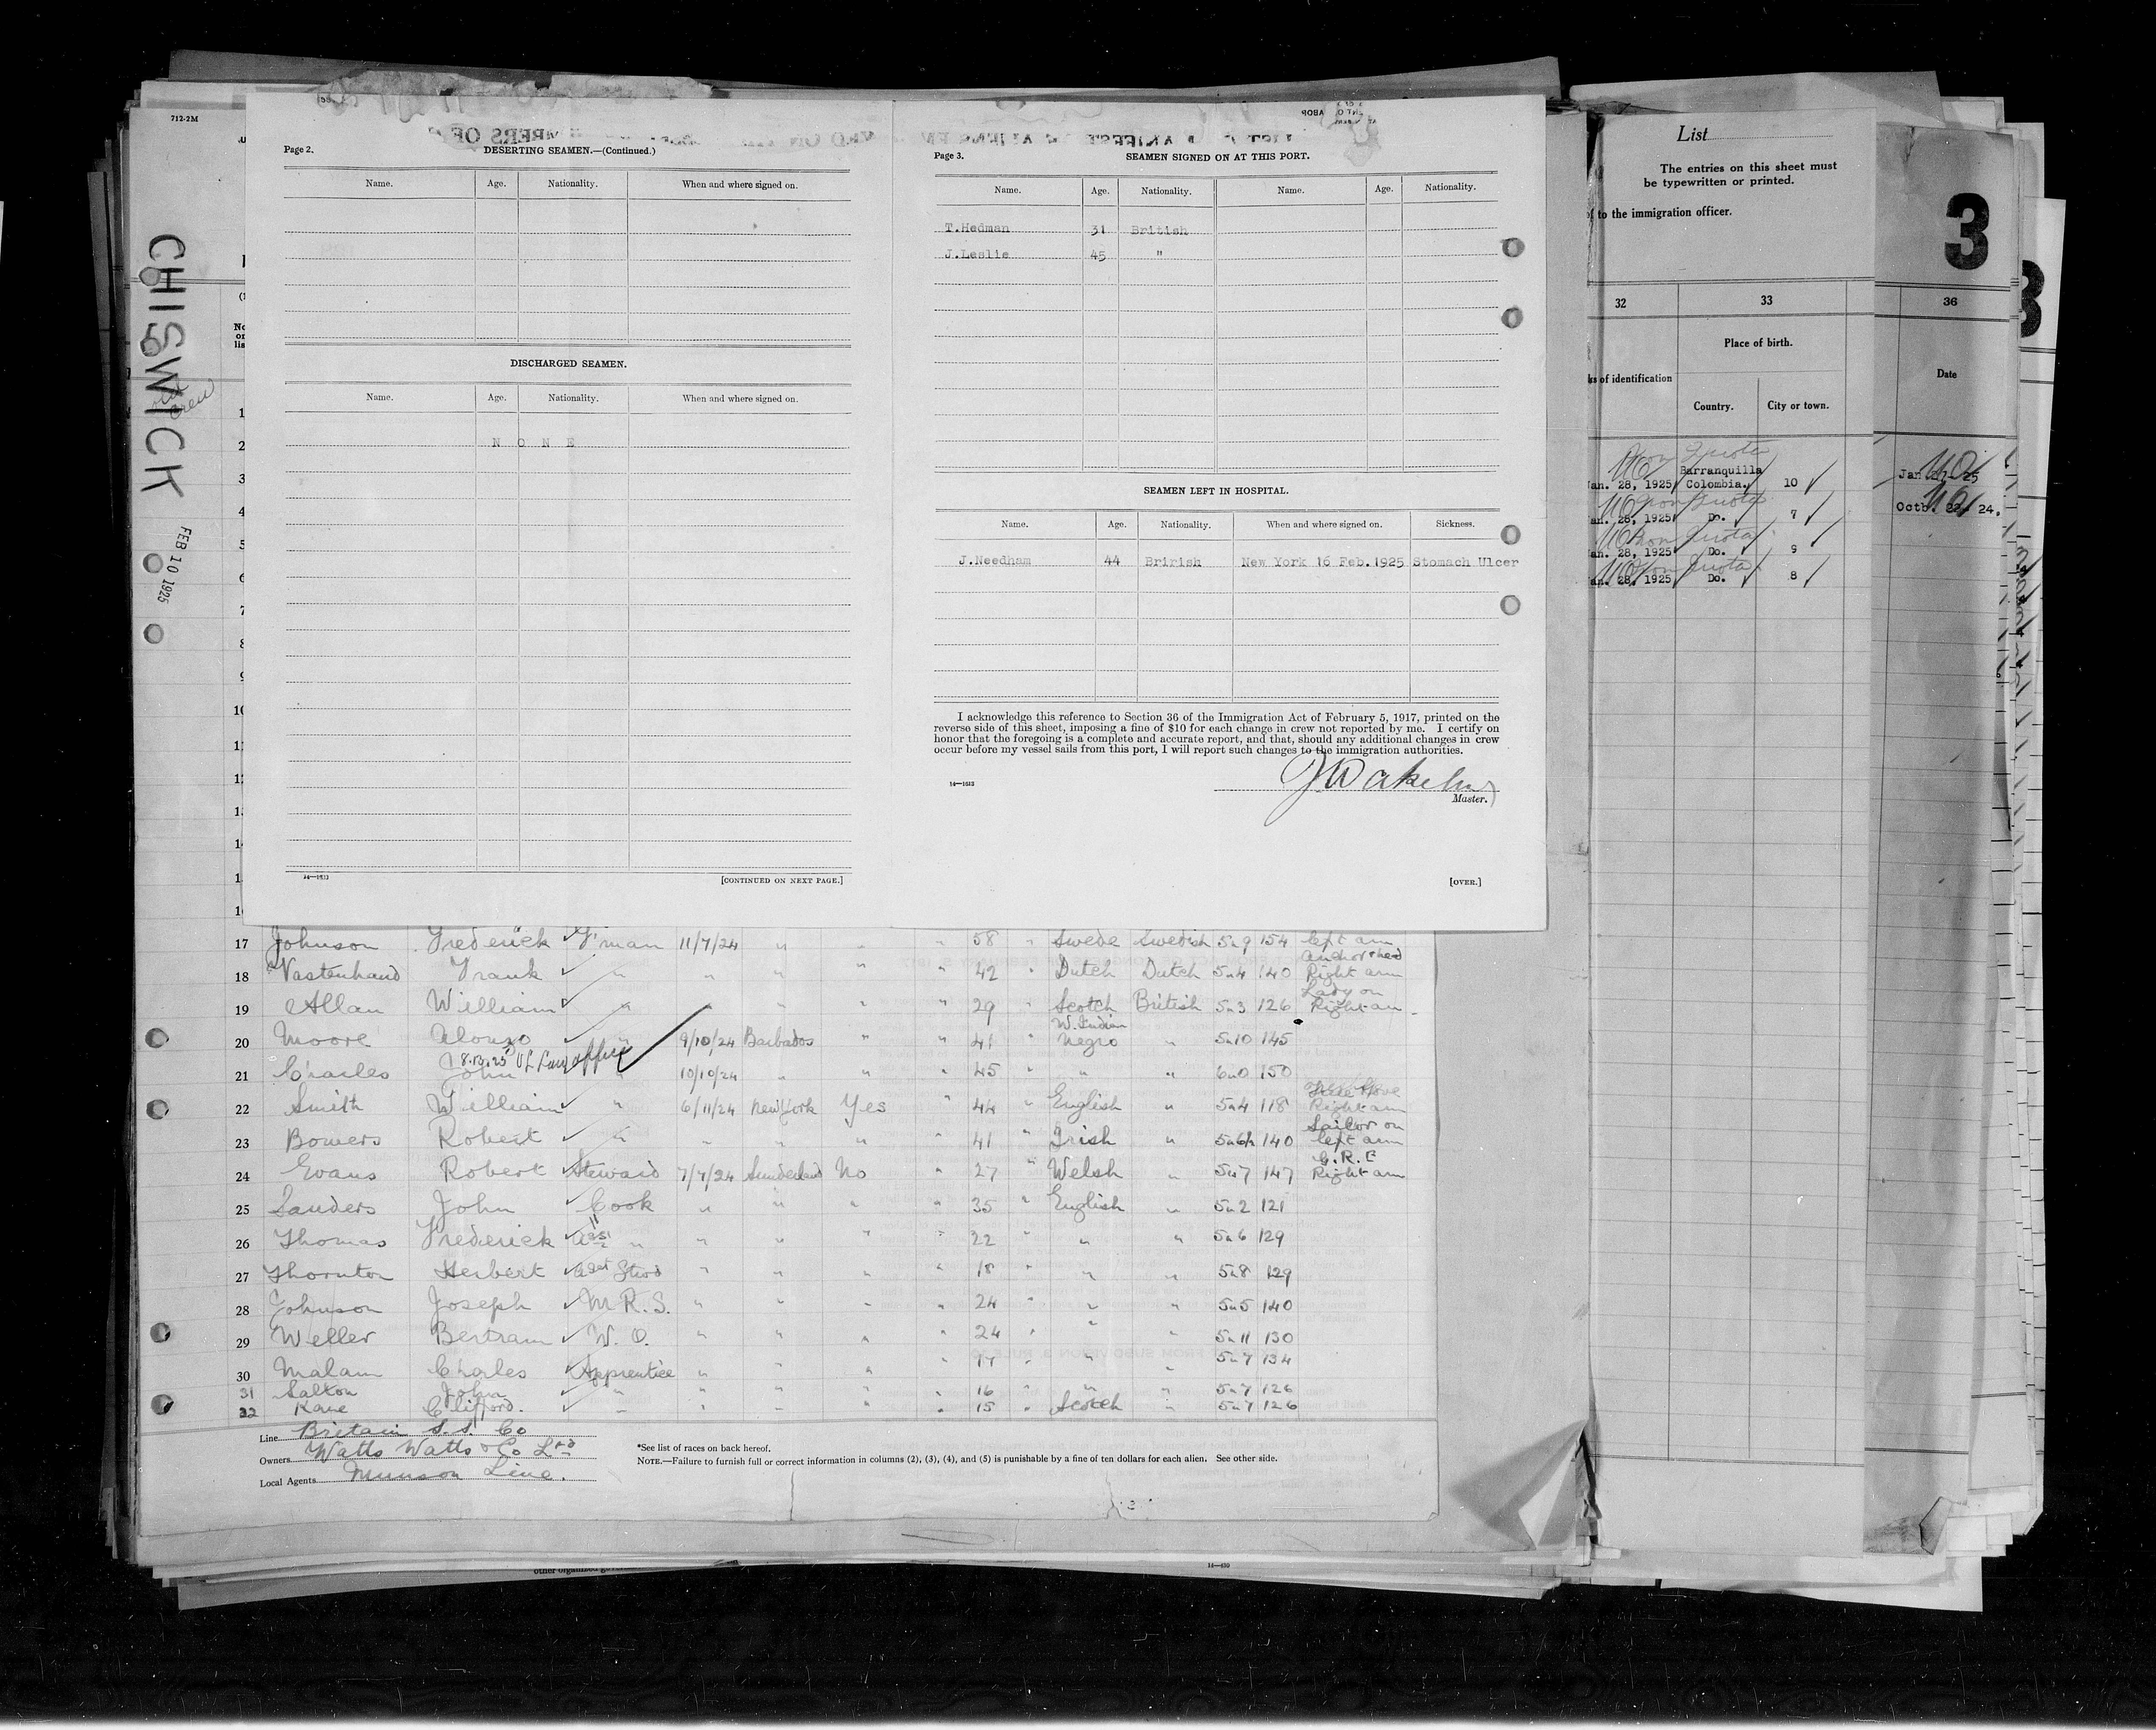 712-2M
CHISWICK
FEB 10 1925
Page 2.
DESERTING SEAMEN.—(Continued.)
Name. Age. Nationality. When and where signed on.
DISCHARGED SEAMEN.
Name. Age. Nationality. When and where signed on.
N O N E
14—1633
[CONTINUED ON NEXT PAGE.]
Page 3.
SEAMEN SIGNED ON AT THIS PORT.
Name. Age. Nationality. Name. Age. Nationality.
T.Hedman 31 British
J.Leslie 45 "
SEAMEN LEFT IN HOSPITAL.
Name. Age. Nationality. When and where signed on. Sickness.
J.Needham 44 Brirish New York 16 Feb.1925 Stomach Ulcer
I acknowledge this reference to Section 36 of the Immigration Act of February 5, 1917, printed on the
reverse side of this sheet, imposing a fine of $10 for each change in crew not reported by me. I certify on
honor that the foregoing is a complete and accurate report, and that, should any additional changes in crew
occur before my vessel sails from this port, I will report such changes to the immigration authorities.
14—1633
Master.
[OVER.]
List
The entries on this sheet must
be typewritten or printed.
to the immigration officer.
3
32 33 36
Place of birth.
of identification Date
Country. City or town.
Non Quota
Barranquilla
an. 28, 1925 Colombia. 10
Non Quota
an. 28, 1925 Do. 7
Non Quota
an. 28, 1925 Do. 9
Non Quota
an. 28, 1925 Do. 8
1
2
3
4
5
6
7
8
9
10
11
12
17 Johnson Frederick F'man 11/7/24 " " " 58 " Swede Swedish 5"9 154 left arm
anchor & head
18 Vastenhaud Frank " " " " " 42 " Dutch Dutch 5"4 140 Right arm
Lady on
19 Allan William " " " " " 29 " Scotch British 5"3 126 Right arm
W. Indian
20 Moore Alonzo " 9/10/24 Barbados " " 41 " Negro " 5"10 145
21 Charles John " 10/10/24 " " " 45 " " " 6"0 150
22 Smith William " 6/11/24 New York Yes " 44 " English " 5"4 118 Right arm
Sailor on
23 Bowers Robert " " " " " 41 " Irish " 5"6½ 140 left arm
G.R.E
24 Evans Robert Steward 7/7/24 Sunderland No " 27 " Welsh " 5"7 147 Right arm
25 Sanders John Cook " " " " 35 " English " 5"2 121
26 Thomas Frederick Asst " " " " " 22 " " " 5"6 129
27 Thornton Herbert Asst Stwd " " " " 18 " " " 5"8 129
28 Johnson Joseph M.R.S. " " " " 24 " " " 5"5 140
29 Weller Bertram W.O. " " " " 24 " " " 5"11 130
30 Malam Charles Apprentice " " " " 17 " " " 5"7 134
31 Salkon John " " " " " 16 " " " 5"7 126
32 Kane Clifford. " " " " " 15 " Scotch " 5"7 126
Line Britain S.S. Co
Owners Watts Watts & Co Ltd
Local Agents Munson Line.
*See list of races on back hereof.
NOTE.—Failure to furnish full or correct information in columns (2), (3), (4), and (5) is punishable by a fine of ten dollars for each alien. See other side.